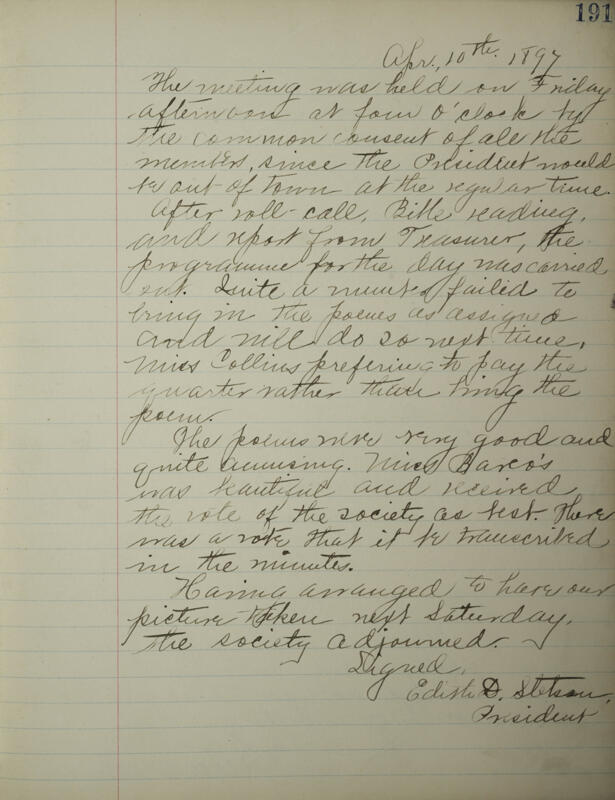 191
Apr. 10th. 1897
The meeting was held on Friday
afternoon at four o'clock by
the common consent of all the
members, since the President would
be out of town at the regular time.
After roll-call, Bible reading,
and report from Treasurer, the
programme for the day was carried
out. Quite a number failed to
bring in the poems as assigned
and will do so next time,
Miss Collins prefering to pay the
quarter rather than bring the
poem.
The poems were very good and
quite amusing. Miss
was beautiful and received
the vote of the society as best. There
was a vote that it be transcribed
in the minutes.
Having arranged to have our
picture taken next Saturday,
the society adjourned.
Signed,
Edith D. Stetson,
President